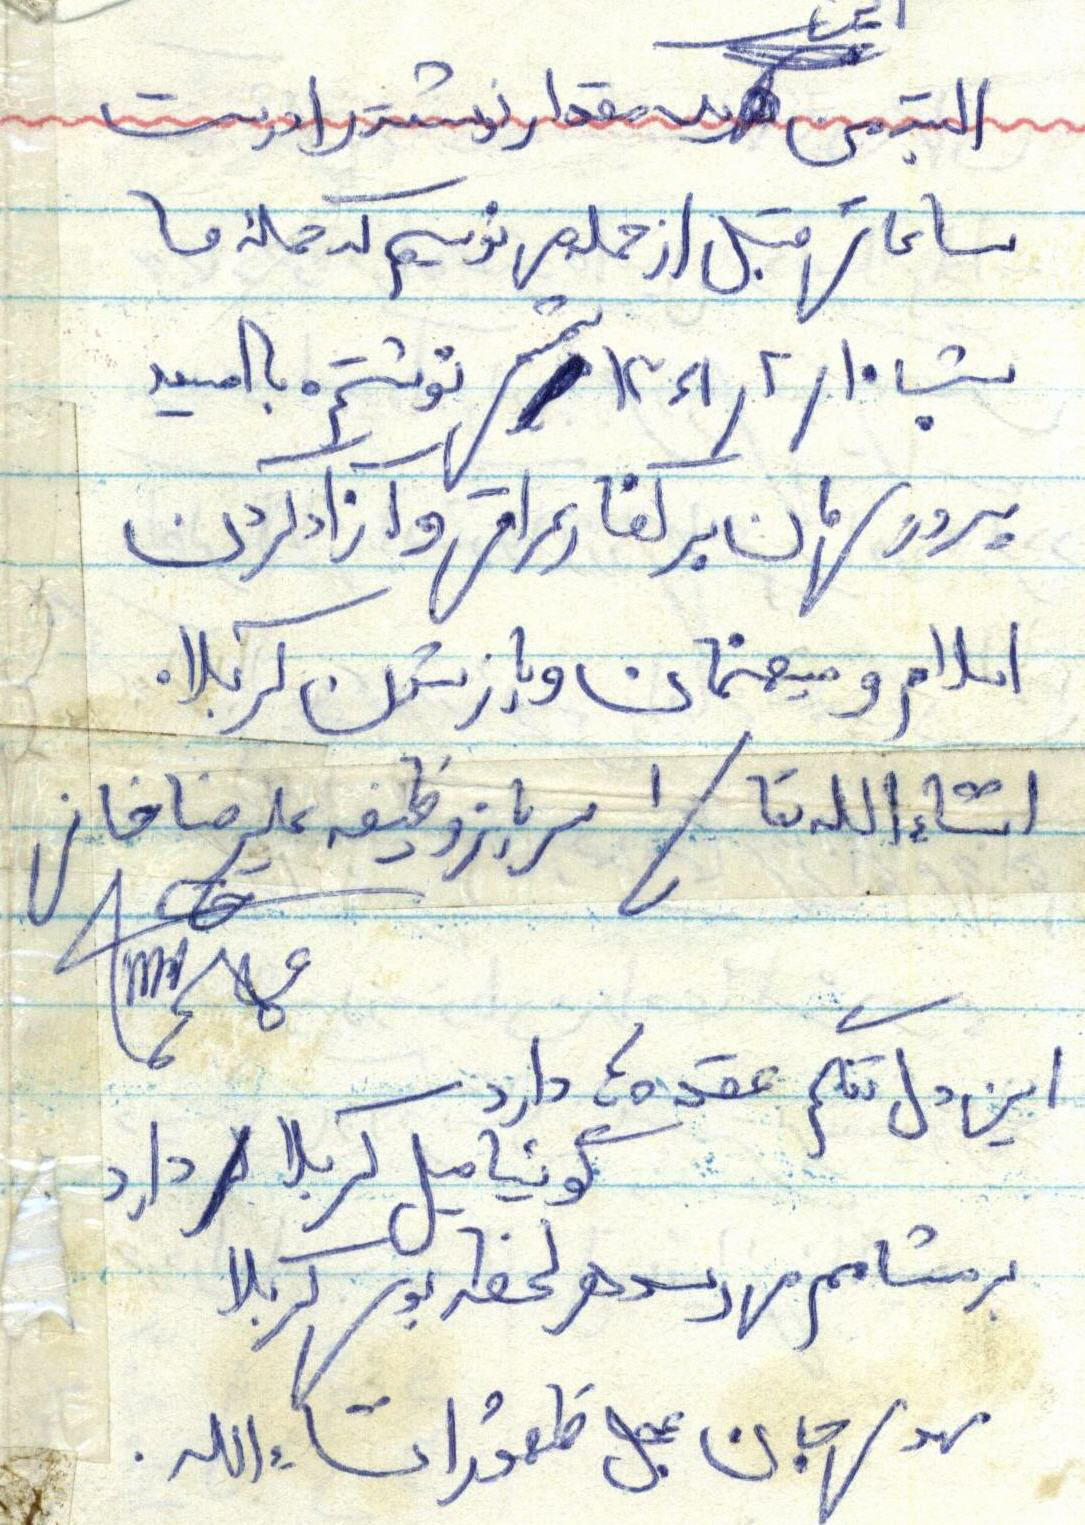 این
البته من مقدار نوشته را درست
ساعاتی قبل از حمله می نویسم که حمله ما
شب ۱۰/۲/۱۳۶۱ نوشته ام بامید
پیروزیمان بر کفار عراقی و آزاد کردن
اسلام و میهنمان و باز شدن کربلا.
انشاءالله تعا / سرباز وظیفه علیرضا خانی
این دل تنگم عقده ها دارد
گوئیا میل کربلا دارد
بر مشامم میرسد هر لحظه بوی کربلا
مهدی جان عجل ظهورک انشاءالله.